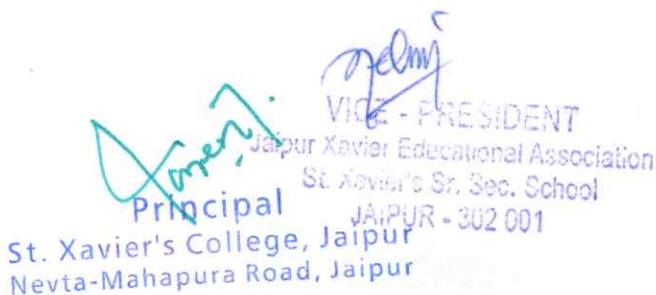 VICE - PRESIDENT
Jaipur Xavier Educational Association
St. Xavier's Sr. Sec. School
JAIPUR - 302 001
Principal
St. Xavier's College, Jaipur
Nevta-Mahapura Road, Jaipur